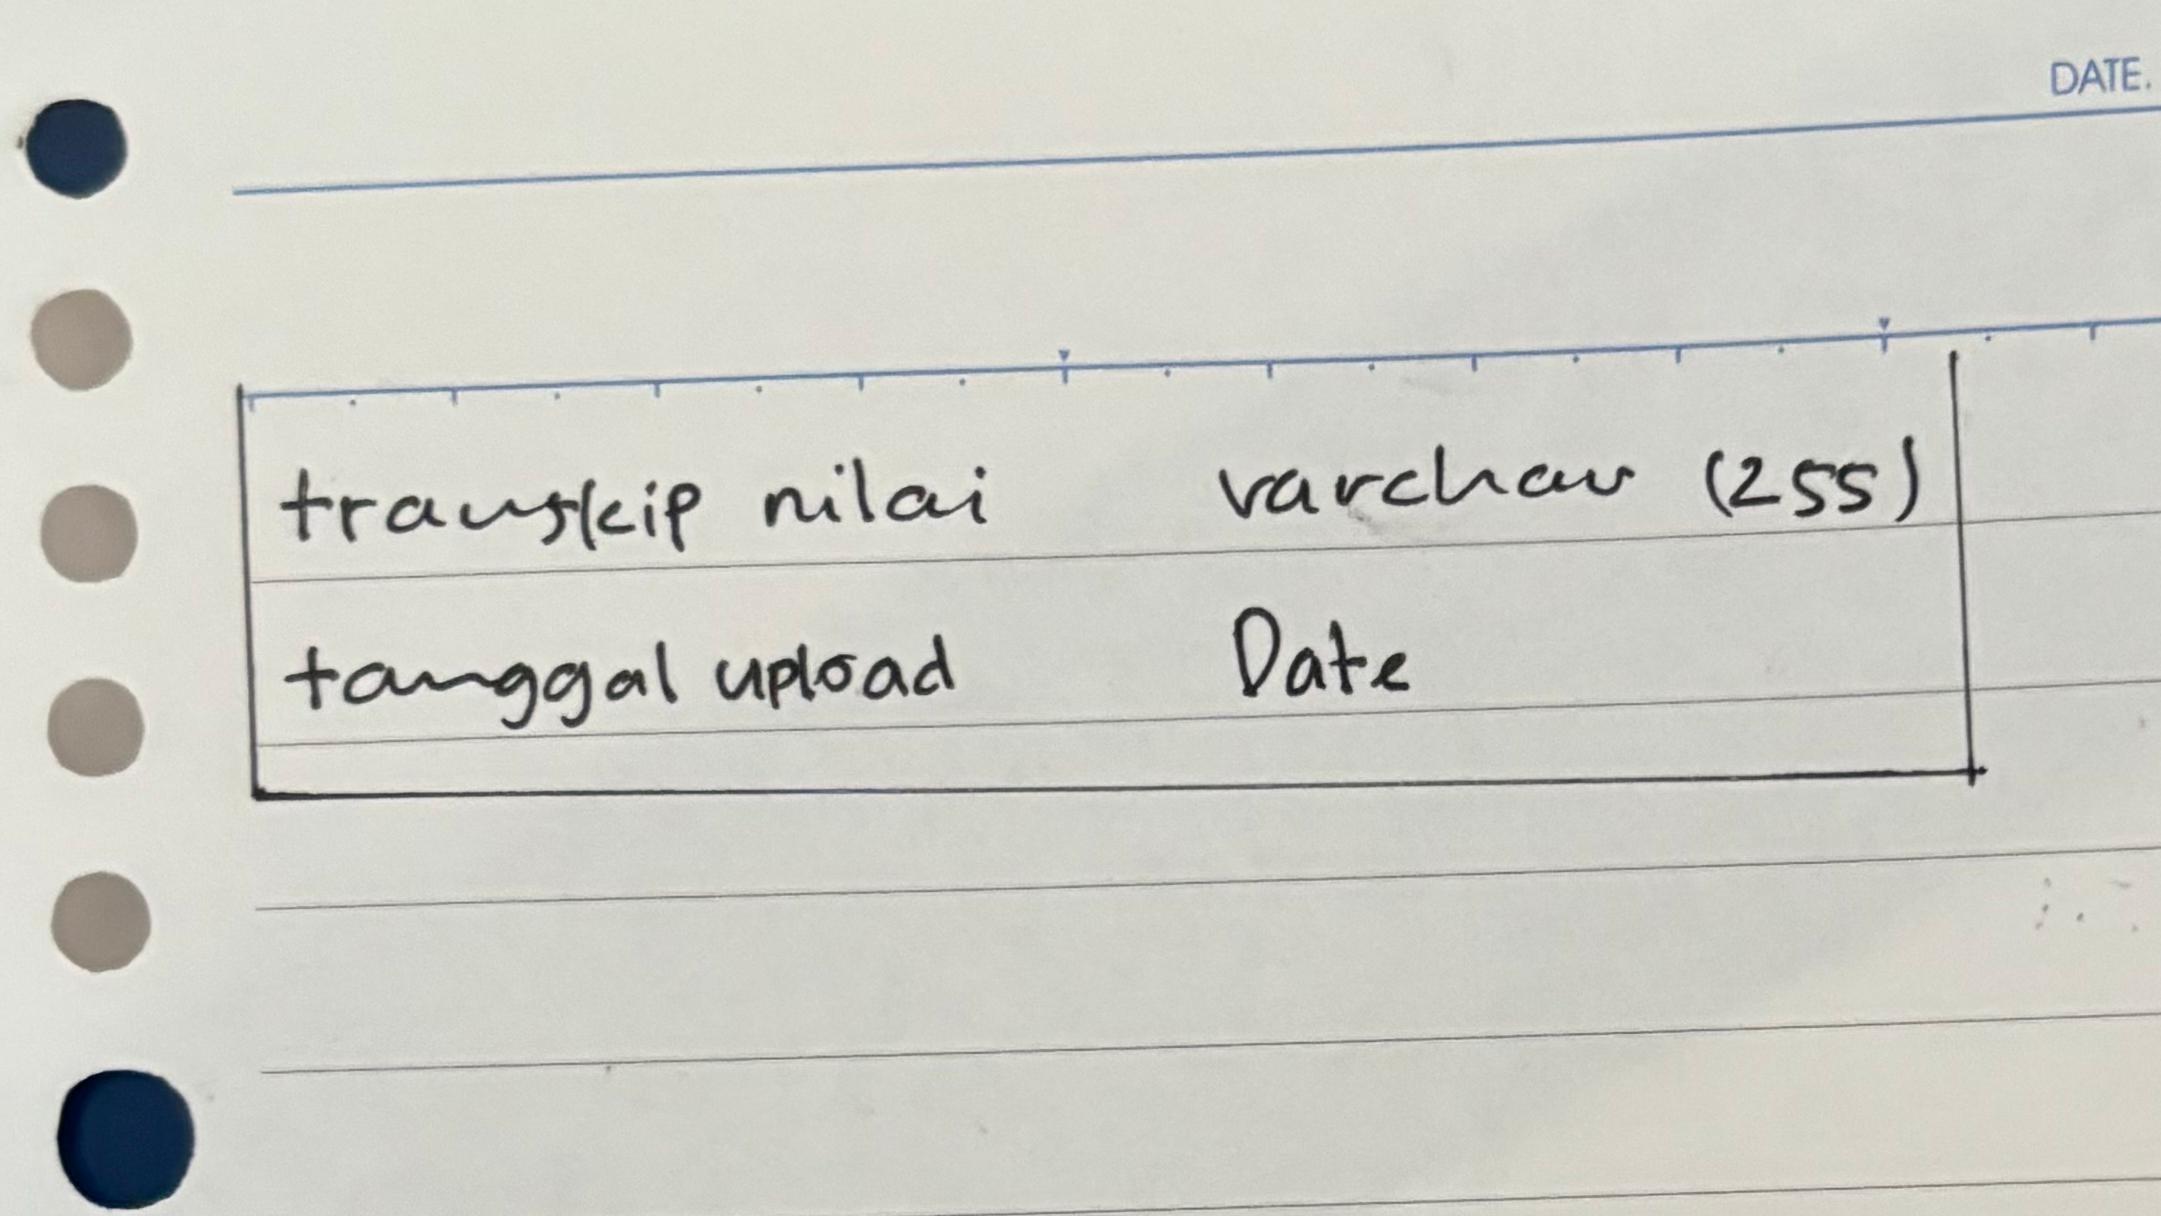 DATE.
transkip nilai varchar (255)
tanggal upload Date